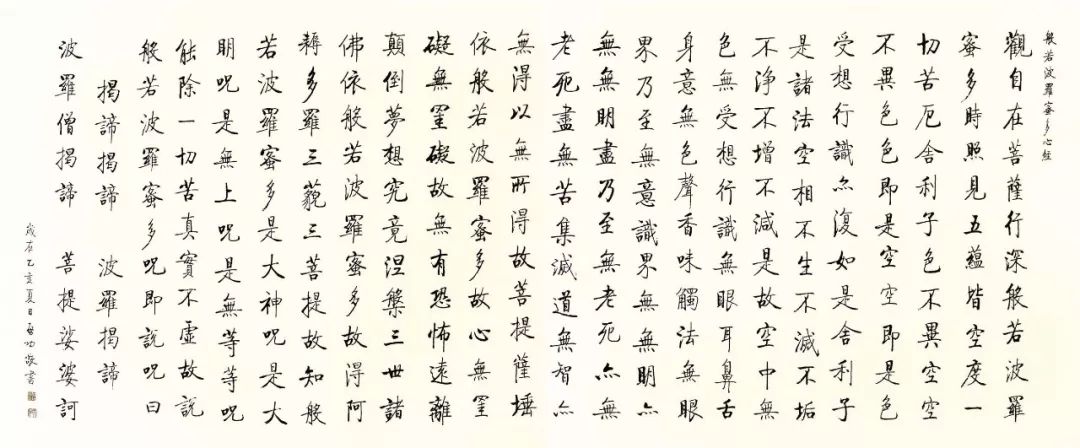 般若波羅蜜多心經
觀自在菩薩行深般若波羅
蜜多時照見五蘊皆空度一
切苦厄舍利子色不異空空
不異色色即是空空即是色
受想行識亦復如是舍利子
是諸法空相不生不滅不垢
不淨不增不減是故空中無
色無受想行識無眼耳鼻舌
身意無色聲香味觸法無眼
界乃至無意識界無無明亦
無無明盡乃至無老死亦無
老死盡無苦集滅道無智亦
無得以無所得故菩提薩埵
依般若波羅蜜多故心無罣
礙無罣礙故無有恐怖遠離
顛倒夢想究竟涅槃三世諸
佛依般若波羅蜜多故得阿
耨多羅三藐三菩提故知般
若波羅蜜多是大神呪是大
明呪是無上呪是無等等呪
能除一切苦真實不虛故說
般若波羅蜜多呪即說呪曰
揭諦揭諦 波羅揭諦
波羅僧揭諦 菩提娑婆訶
歲在乙亥夏日啟功敬書